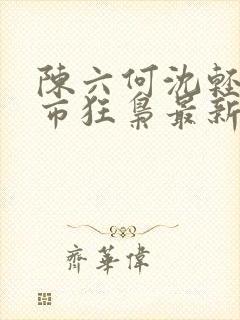 陳六何沈輕
市狂梟最新
齊華偉